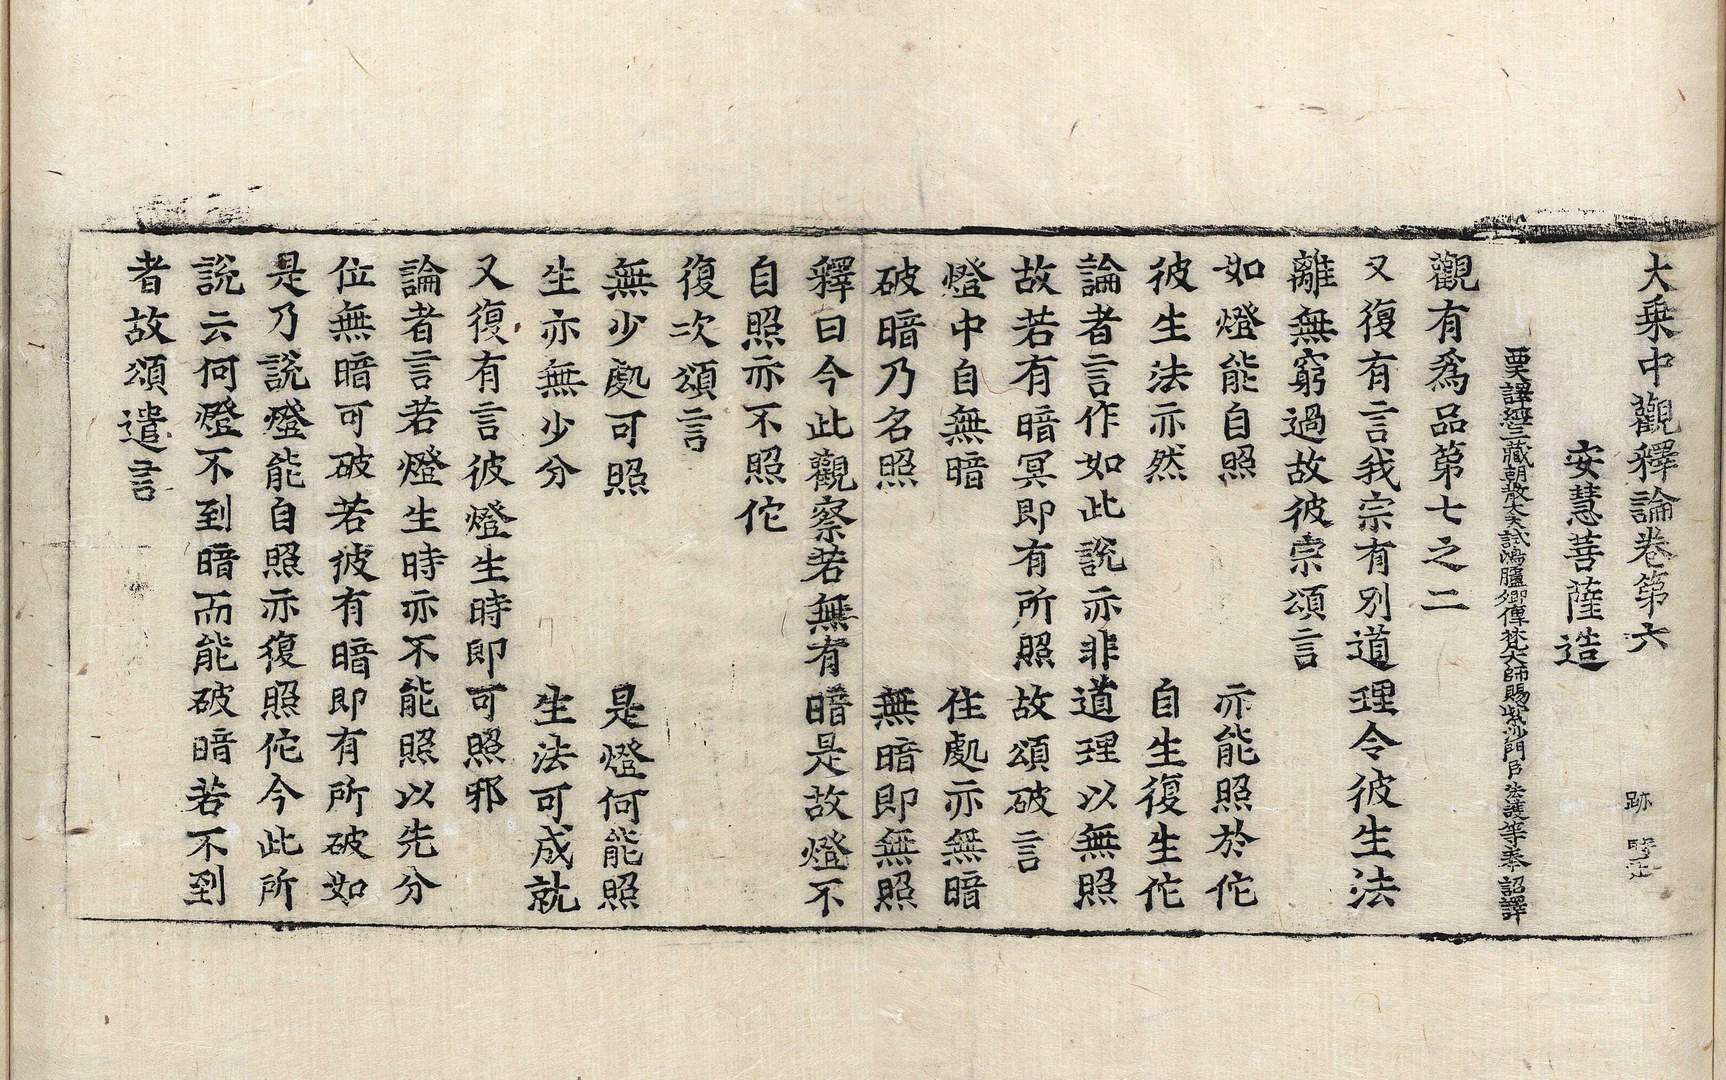 大乗中觀釋論卷第六 跡
安慧菩薩造
西天譯經三藏朝散大夫試鴻臚卿傳梵大師賜紫沙門臣法護等奉 詔譯
觀有爲品第七之二
又復有言我宗有別道理令彼生法
離無窮過故彼宗頌言
如燈能自照 亦能照於佗
彼生法亦然 自生復生佗
論者言作如此說亦非道理以無照
故若有暗冥即有所照故頌破言
燈中自無暗 住處亦無暗
破暗乃名照 無暗即無照
釋曰今此觀察若無有暗是故燈不
自照亦不照佗
復次頌言
無少處可照 是燈何能照
生亦無少分 生法可成就
又復有言彼燈生時即可照邪
論者言若燈生時亦不能照以先分
位無暗可破若彼有暗即有所破如
是乃說燈能自照亦復照佗今此所
說云何燈不到暗而能破暗若不到
者故頌遣言